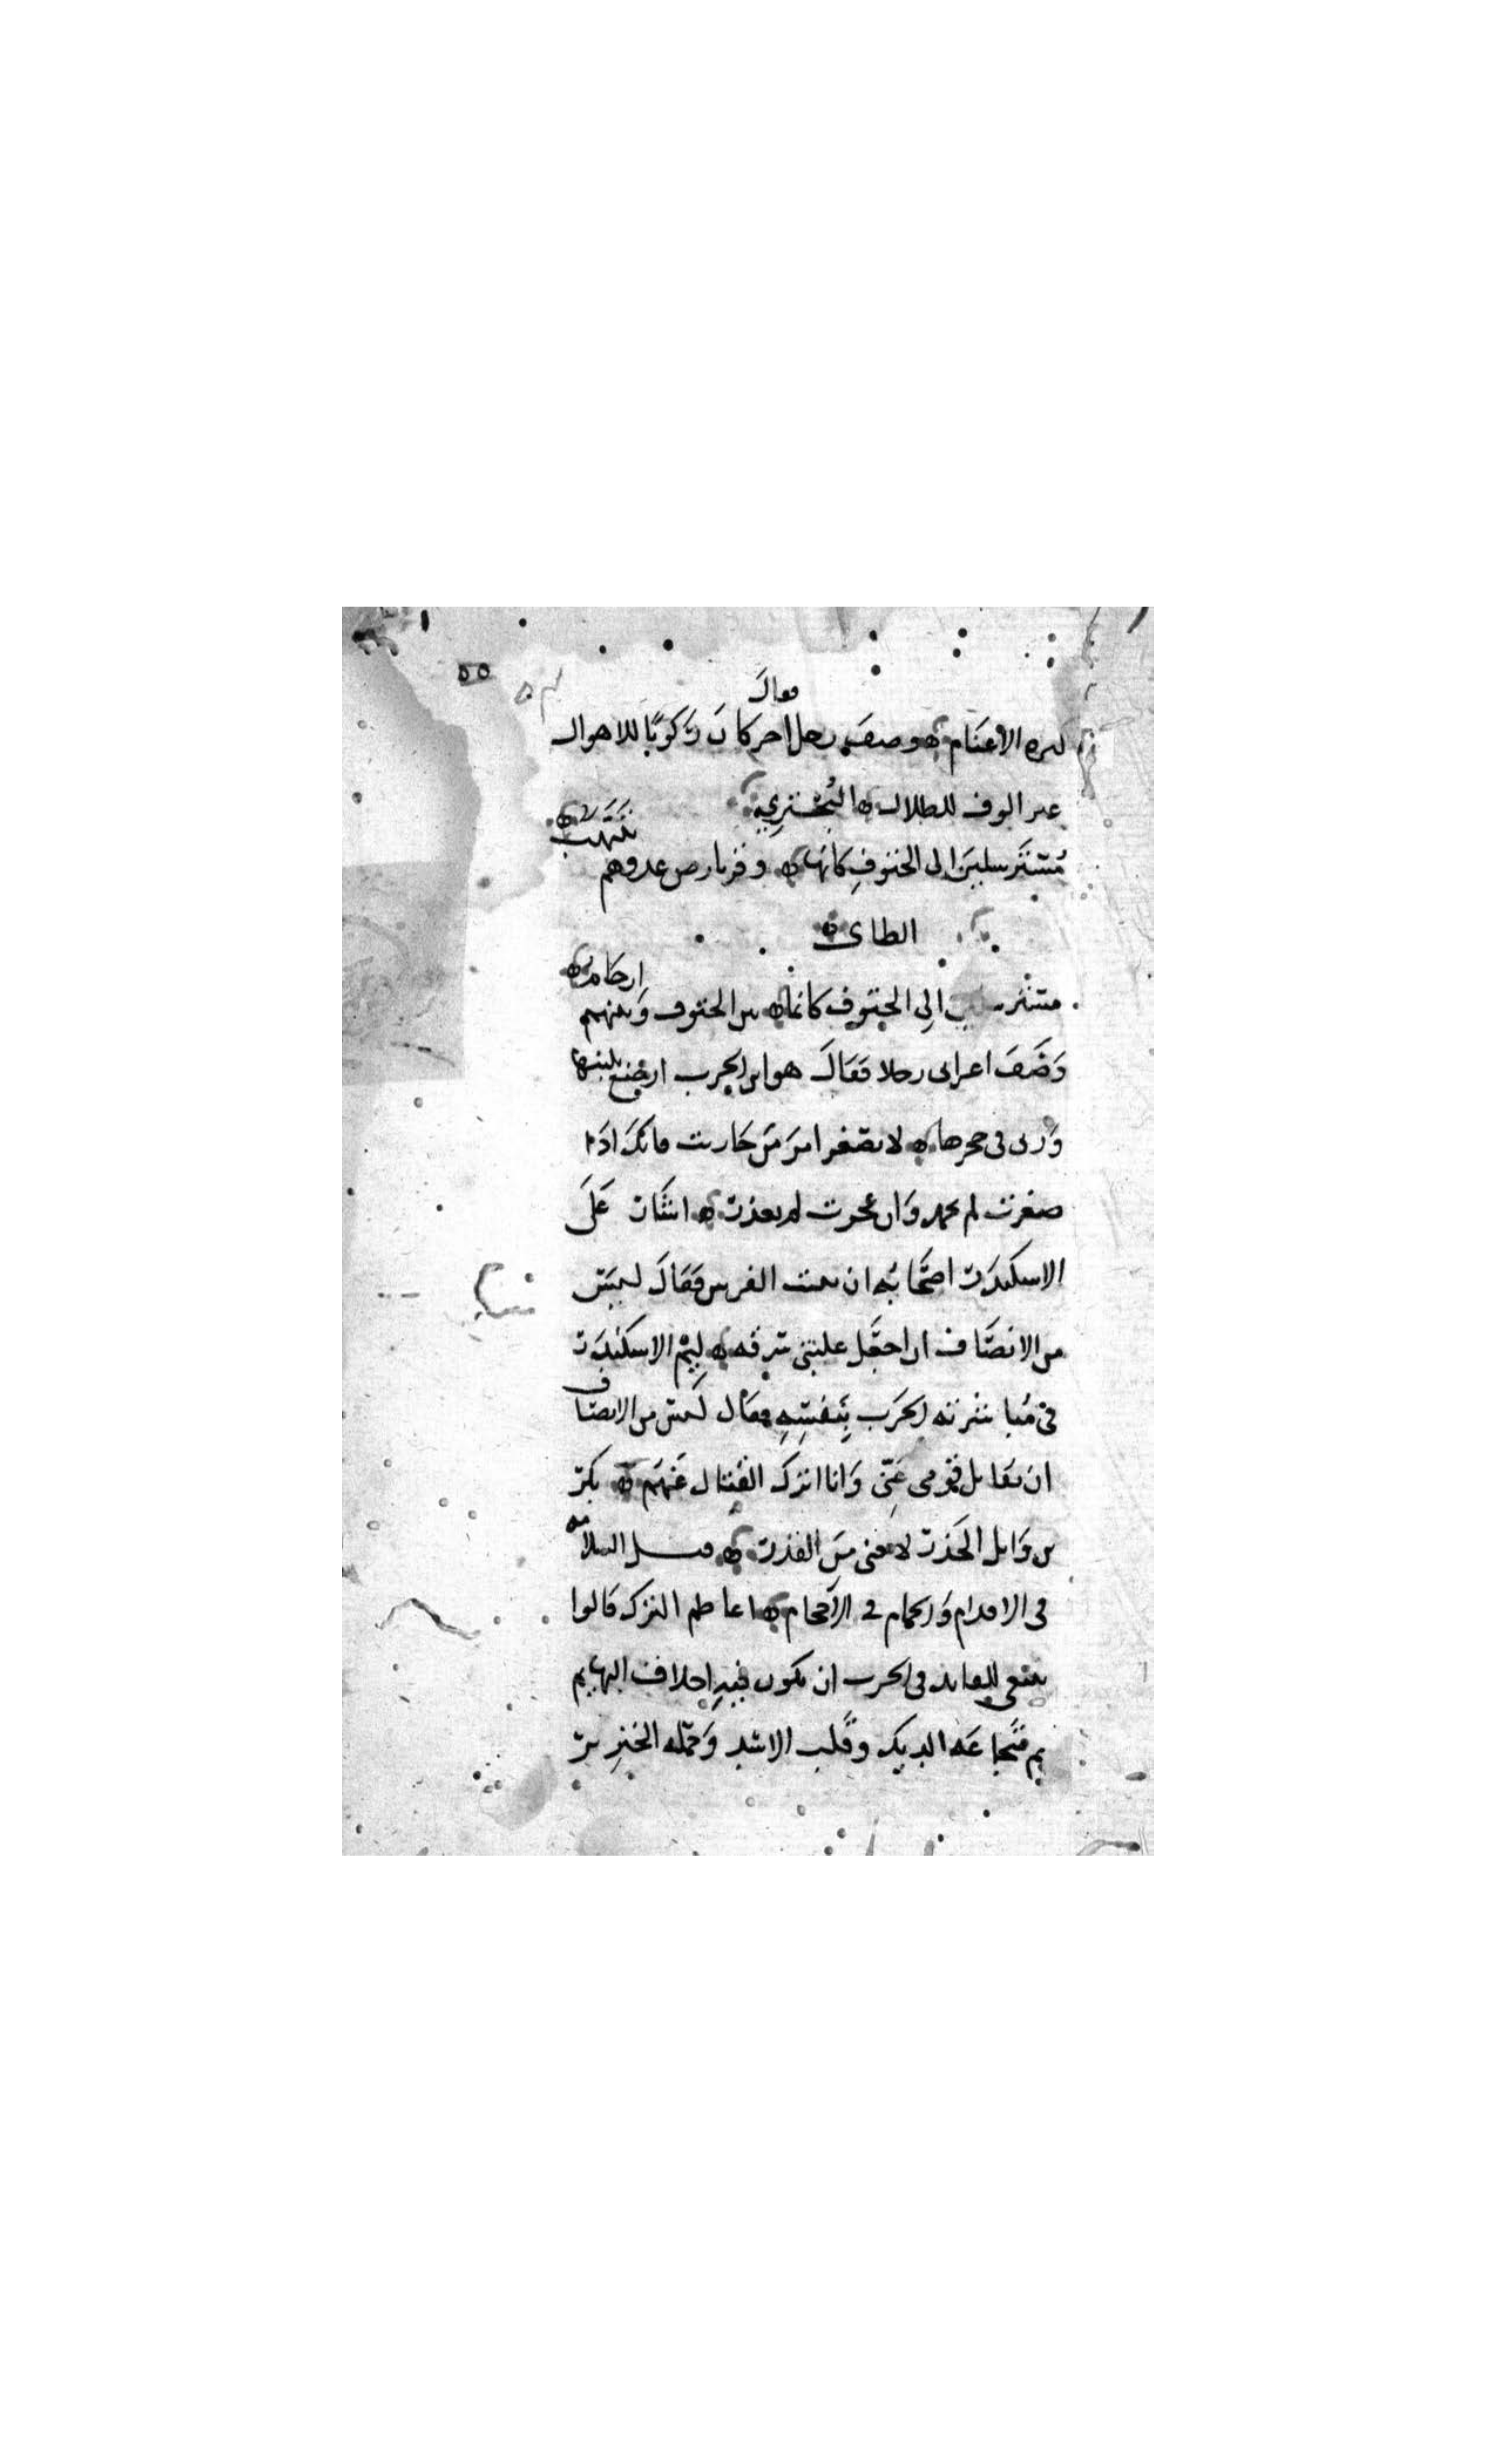 فقال
كثره الاغتنام وصف رجل اخر كان رَكوبًا للاهوال
غير الوف للظلال البُحتري
مُسترسلين الى الحتوف كانها وفر بارض عدوهم يُنتَهَب
الطاى
مسترسلين الى الحتوف كانما بين الحتوف وبينهم ارحام
وَصَف اعرابى رجلا فقال هو ابن الحرب ارتضع بلبنها
وَربى فى حجرها لا تصغر امر من حاربت فانك اذا
ظفرت لم تحمد وان عجزت لم تعذر اشار على
الاسكندر اصحابه ان يبيت الفرس فقال ليس
من الانصاف ان اجعل غلبتى سرقه ليم الاسكندر
فى مُباشرته الحرب بنفسه فقال ليس من الانصاف
ان يقاتل قومى عنى وانا اترك القتال عنهم بكر
بن وائل الحذر لا يغنى من القدر قيل السلامه
فى الاقدام والحمام فى الاحجام اعاظم الترك قالوا
ينبغى للقائد فى الحرب ان يكون فيه اخلاف البهايم
شجاعه الديك وقلب الاسد وَحمله الخنزير